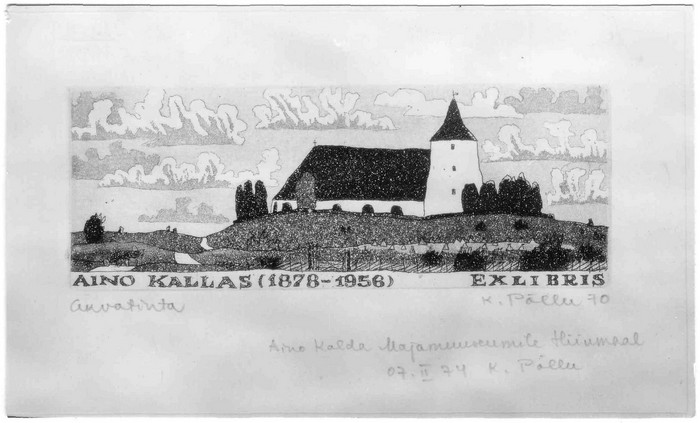 AINO KALLAS (1878-1956) EXLIBRIS
Akvatinta K. Põllu 70
Aino Kalda Majamuuseumile Hiiumaal
07. II 74 K. Põllu